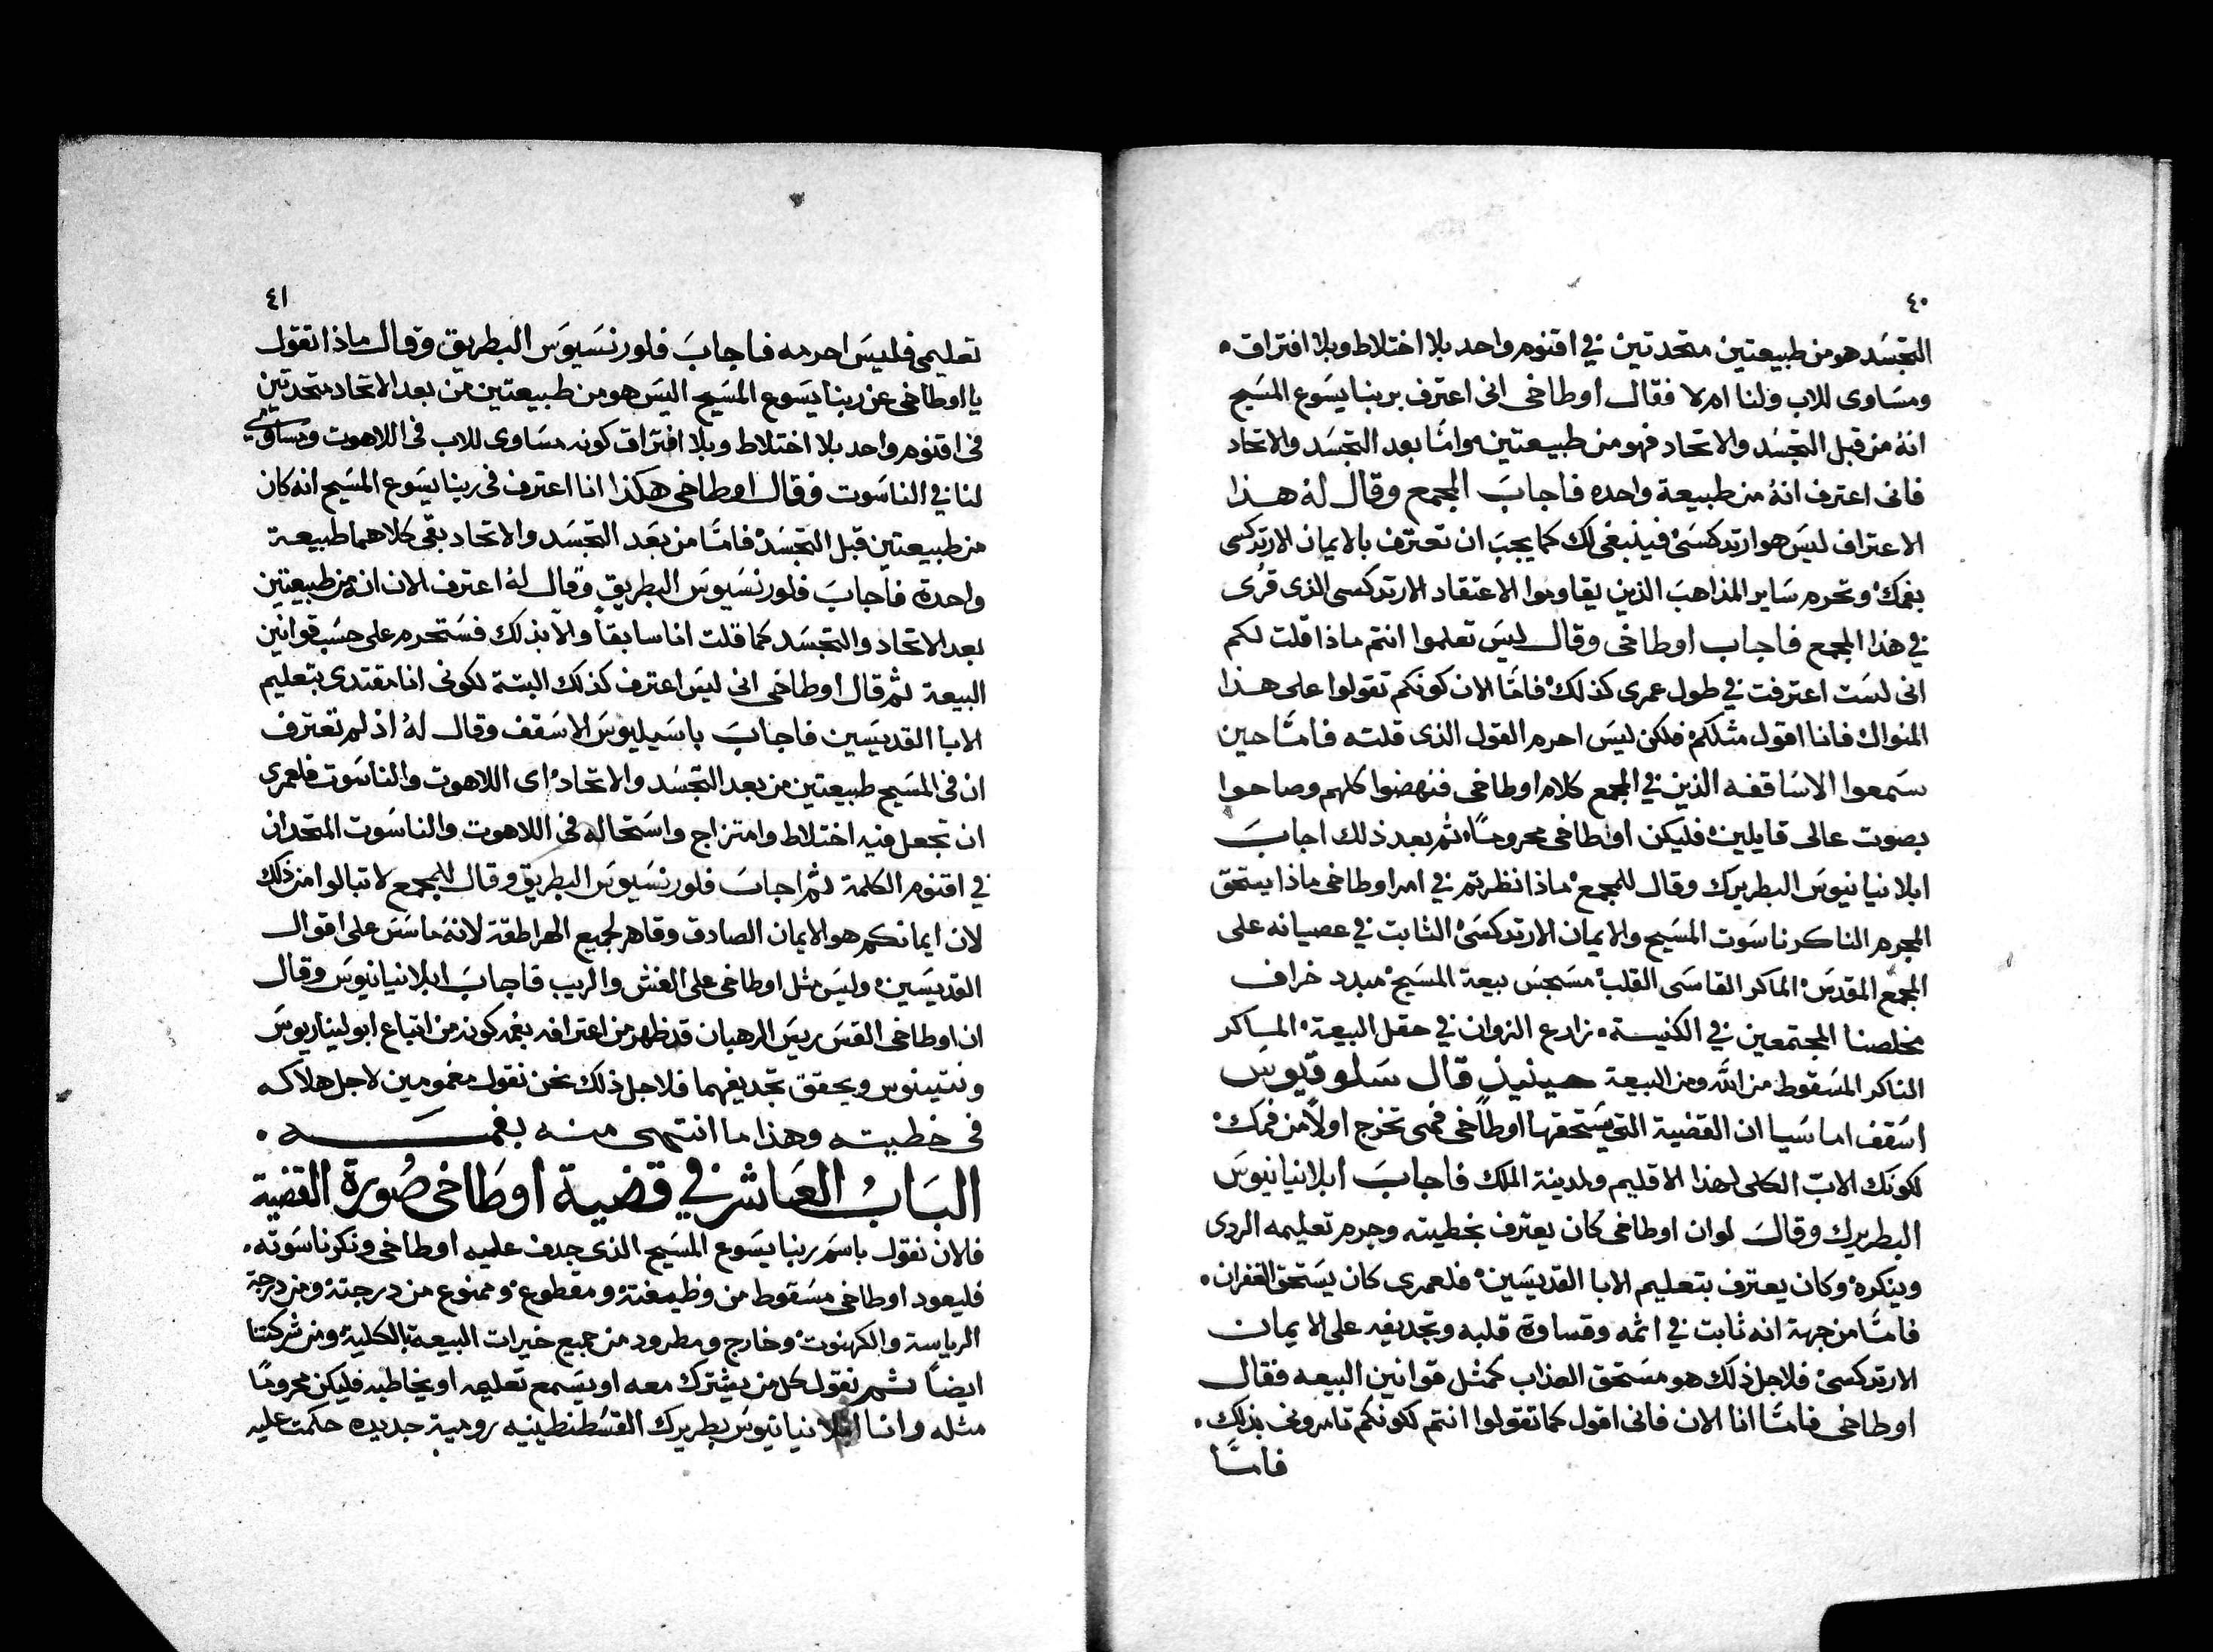 ٤٠
التجسد هو من طبيعتين متحدتين في اقنوم واحد بلا اختلاط وبلا افتراق.
ومساوى للاب ولنا ام لا فقال اوطاخى انى اعترف بربنا يسوع المسيح
انهُ من قبل التجسد والاتحاد فهو من طبيعتين وامّا بعد التجسد والاتحاد
فانى اعترف انهُ من طبيعة واحده فاجاب المجمع وقال لهُ هذا
الاعتراف ليس هو ارتدكسى فينبغى لك كما يجب ان تعترف بالايمان الارتدكسى
بفمك وتحرم ساير المذاهب الذين يقاوموا الاعتقاد الارتدكسى الذى قرى
في هذا المجمع فاجاب اوطاخى وقال ليس تعلموا انتم ماذا قلت لكم
انى لست اعترفت في طول عمرى كذلك فامّا الان كونكم تقولوا على هذا
المنوال فانا اقول مثلكم فلكن ليس احرم القول الذى قلته فامّا حين
سمعوا الاساقفه الذين في المجمع كلام اوطاخى فنهضوا كلهم وصاحوا
بصوت عالى قايلين فليكن اوطاخى محرومًا ثم بعد ذلك اجاب
ابلانيانيوس البطريرك وقال للمجمع ماذا نظرتم في امر اوطاخى ماذا يستحق
المجرم الناكر ناسوت المسيح والايمان الارتدكسى الثابت في عصيانه على
المجمع المقدس الماكر القاسى القلب مسجس بيعة المسيح مبدد خراف
مخلصنا المجتمعين في الكنيسة. زارع الزوان في حقل البيعة الماكر
الناكر المسقوط من الله ومن البيعة حينيذ قال سلوقيوس
اسقف اماسيا ان القضية التى يستحقها اوطاخى فهى تخرج اولًا من فمك
لكونك الاب الكلى لهذا الاقليم ولمدينة الملك فاجاب ابلانيانيوس
البطريرك وقال لو ان اوطاخى كان يعترف بخطيته وجرم تعليمه الردى
وينكره وكان يعترف بتعليم الابا القديسين فلعمرى كان يستحق الغفران.
فامّا من جهة انه ثابت في اثمه وقساوة قلبه وتجديفه على الايمان
الارتدكسى فلاجل ذلك هو مستحق العذاب كمثل قوانين البيعه فقال
اوطاخى فامّا انا الان فانى اقول كما تقولوا انتم لكونكم تامرونى بذلك.
فامّا
٤١
تعليمى فليس احرمه فاجاب فلورنسيوس البطريق وقال ماذا تقول
يا اوطاخى عن ربنا يسوع المسيح اليس هو من طبيعتين من بعد الاتحاد متحدتين
فى اقنوم واحد بلا اختلاط وبلا افتراق كونه مساوى للاب فى اللاهوت ومساوى
لنا في الناسوت فقال اوطاخى هكذا انا اعترف فى ربنا يسوع المسيح انه كان
من طبيعتين قبل التجسد فامّا من بعد التجسد والاتحاد بقى كلاهما طبيعة
واحدة فاجاب فلورنسيوس البطريق وقال لهُ اعترف الان انه من طبيعتين
بعد الاتحاد والتجسد كما قلت انا سابقاً والا بذلك فستحرم على حسب قوانين
البيعة ثم قال اوطاخى انى ليس اعترف كذلك البتة لكونى انا مقتدى بتعليم
الابا القديسين فاجاب باسيليوس الاسقف وقال لهُ اذ لم تعترف
ان فى المسيح طبيعتين من بعد التجسد والاتحاد اى اللاهوت والناسوت فلعمرى
ان تجعل فيه اختلاط وامتزاج واستحاله فى اللاهوت والناسوت المتحدان
في اقنوم الكلمة ثم اجاب فلورنسيوس البطريق وقال للمجمع لا تبالوا من ذلك
لان ايمانكم هو الايمان الصادق وقاهر لجميع الهراطقة لانهُ ماسس على اقوال
القديسين وليس مثل اوطاخى على الغش والريب فاجاب ابلانيانيوس وقال
ان اوطاخى القس ريس الرهبان قد ظهر من اعترافه بفمه كونه من اتباع ابوليناريوس
ونتينوس ويحقق تجديفهما فلاجل ذلك نحن نقول مغمومين لاجل هلاكه
فى خطيته وهذا ما انتهى منه بفمه.
الباب العاشر في قضية اوطاخى صُورة القضية
فالان نقول باسم ربنا يسوع المسيح الذى جدف عليه اوطاخى ونكر ناسوته.
فليعود اوطاخى مسقوط من وظيفتة ومقطوع وممنوع من درجتة ومن درجة
الرياسة والكهنوت وخارج ومطرود من جميع خيرات البيعة بالكلية ومن شركتنا
ايضاً ثم نقول كل من يشترك معه او يسمع تعليمه او يخاطبه فليكن محرومًا
مثله وانا ابلانيانيوس بطريرك القسطنطينيه رومية جديده حكمت عليه